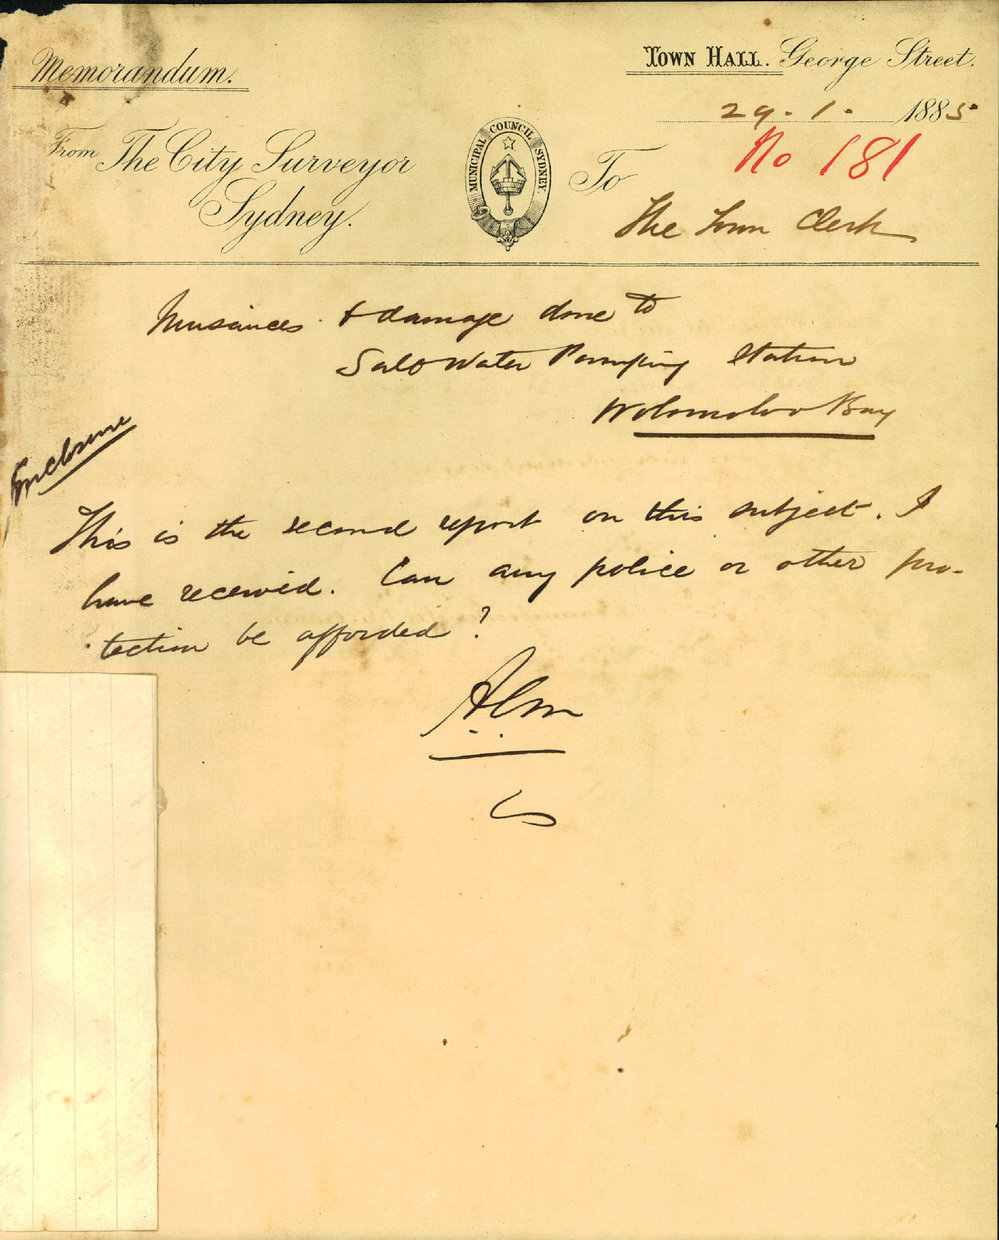 Memorandum.
TOWN HALL. George Street.
29.1. 1885
No 181
From The City Surveyor
Sydney.
MUNICIPAL COUNCIL SYDNEY
To
The Town Clerk
Nusiances & damage done to
Salt Water Pumping Station
Wolomoloo Bay
Enclosure
This is the second report on this subject. I
have received. Can any police or other pro-
tection be afforded?